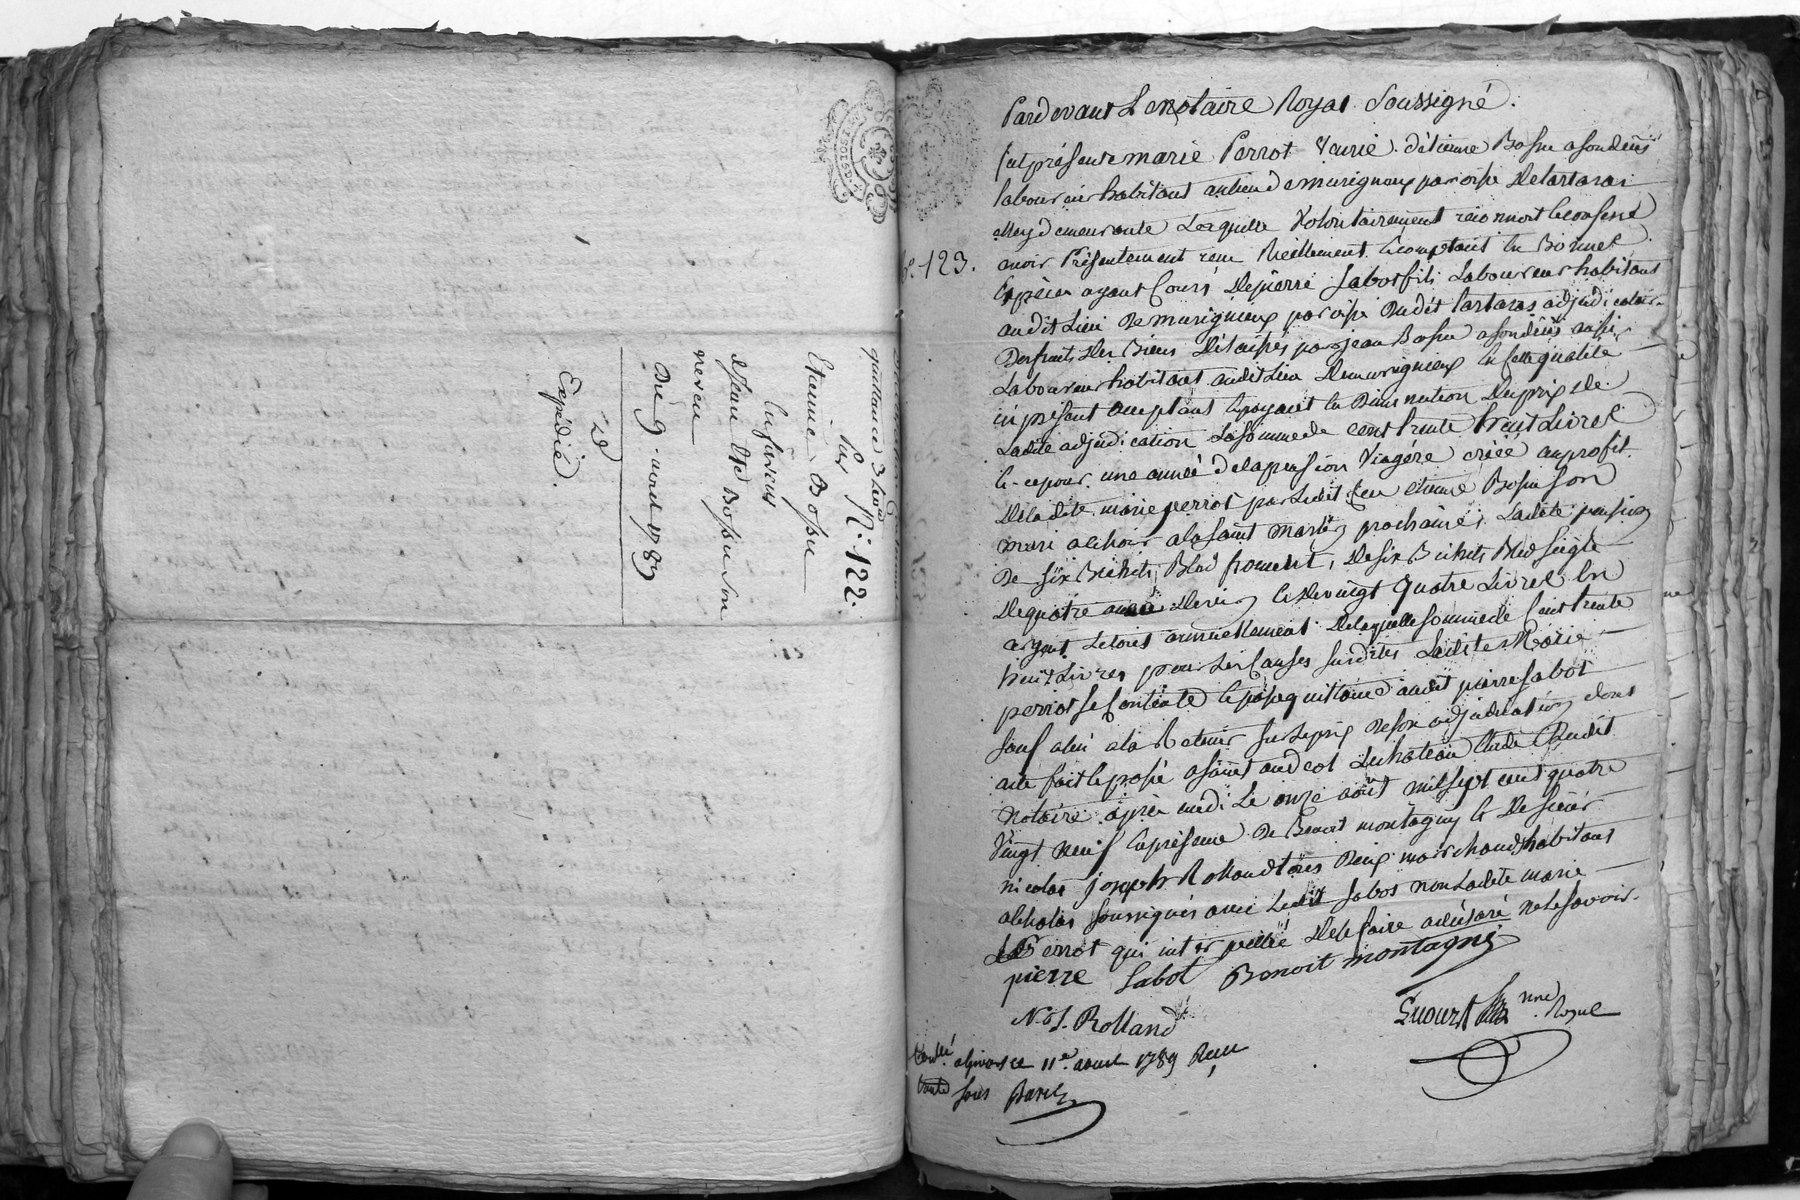 quittance
par N.° 122.
Etienne Bossu
en faveur
de Jean Bte Bossu son
neveu
Du 9 aout 1789
Expédié.
N.° 123.
Pardevant Le notaire Royal Soussigné.
fut présente marie Perrot Veuve d'étienne Bossu a son décès
laboureur habitant au lieu de marignieux paroisse De tartaras
elle y demeurante Laquelle Volontairement reconnoit & confesse
avoir Présentement reçu Réellement & comptant En Bonnes
Espèces ayant Cours De pierre Sabot fils Laboureur habitant
audit Lieu De marignieux paroisse Dudit tartaras adjudicataire
Des fruits Des Biens Délaissés par jean Bossu a son décès aussi
Laboureur habitant audit Lieu De marignieux En Cette qualité
ici présent acceptant & payant En Diminution Du prix De
Ladite adjudication La somme de cent trente huit Livres
& ce pour une année de la pension Viagère créée au profit
De ladite marie perrot par Ledit feu etienne Bossu Son
mari a échoir a la saint Martin prochaine, Ladite pension
De six Bichets Bled froment, De six Bichets Bled seigle
De quatre anées De vin & De vingt quatre Livres En
argent Le tout annuellement De laquelle somme de Cent trente
huit Livres pour Les Causes susdites Ladite Marie
perrot se Contente & passe quittance audit pierre Sabot
sauf a lui a la Retenir sur Le prix De son adjudication dont
acte fait & passé a saint andeol Le chateau Etude Dudit
Notaire après midi Le onze août mil sept cent quatre
Vingt neuf En présence De Benoit montagny & De sieur
nicolas joseph Rolland tous Deux marchands habitants
soussignés avec Ledit Sabot non Ladite marie
Perrot qui interpellée De le faire a déclaré ne le savoir.
pierre Sabot Benoit montagny
N. J. Rolland
nre Royal
Conllé a givors ce 11e aout 1789 Reçu
sous